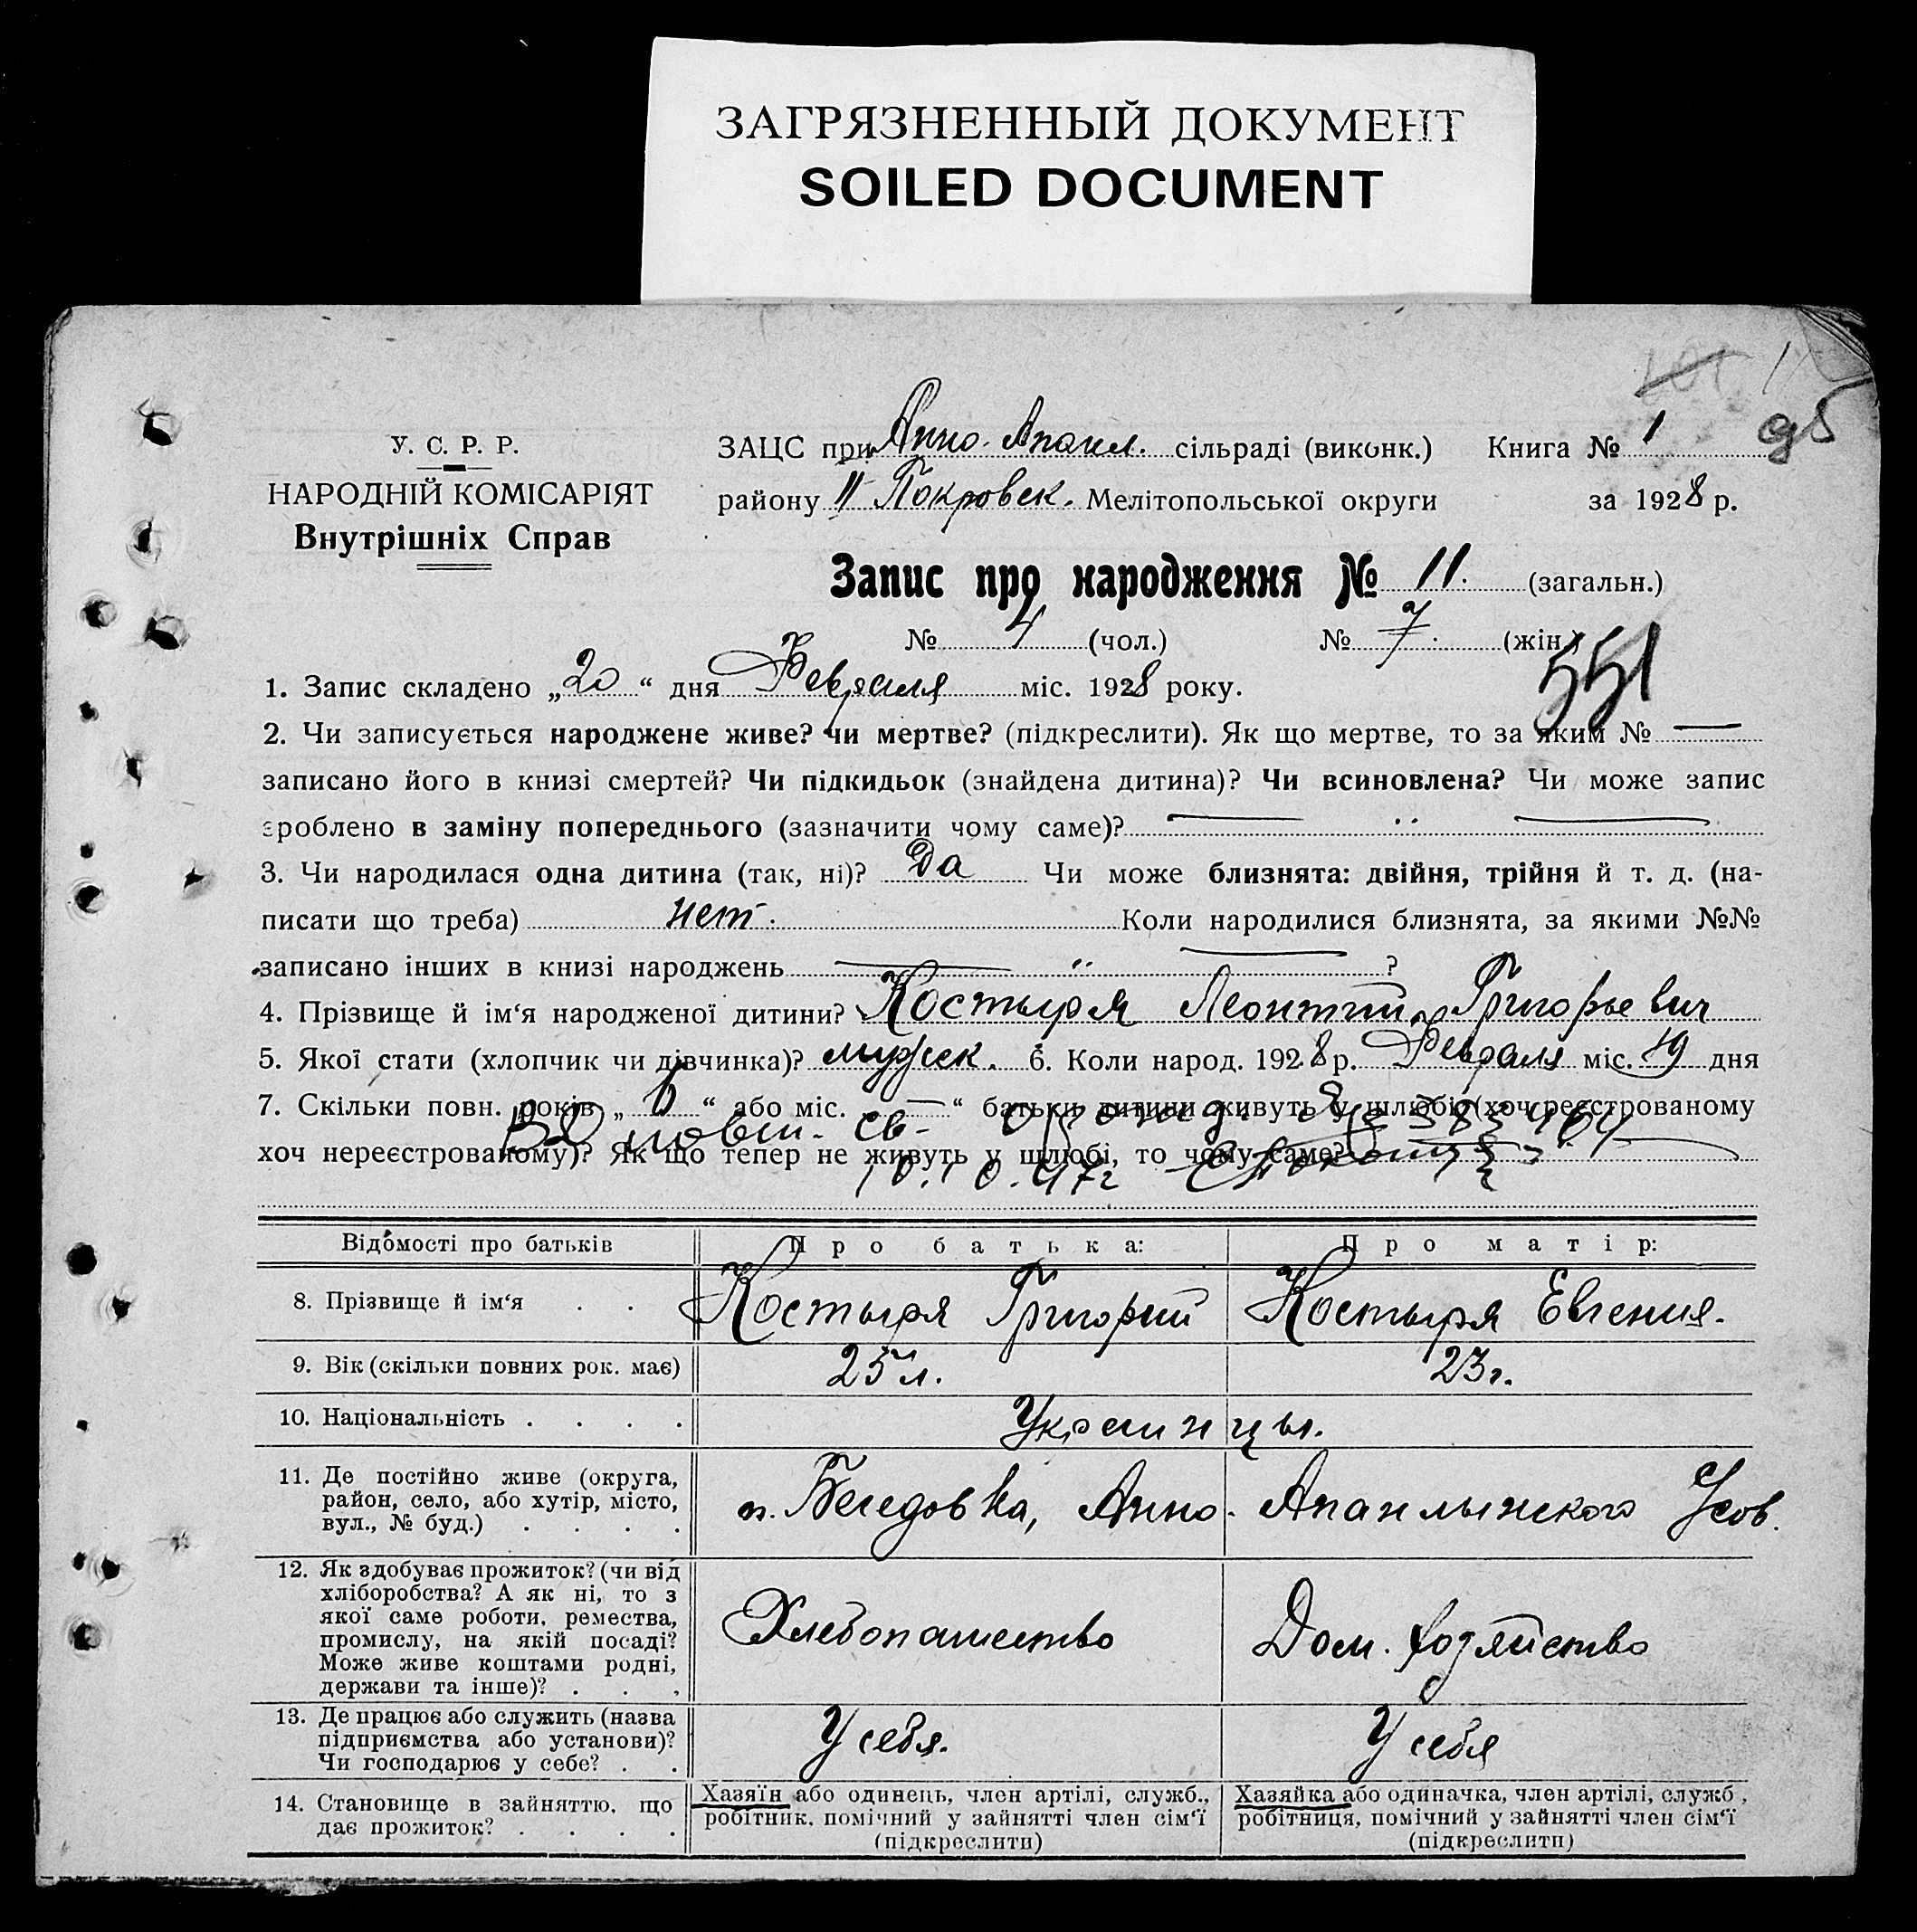 ЗАГРЯЗНЕННЫЙ ДОКУМЕНТ
SOILED DOCUMENT
1
95
У. С. Р. Р.
НАРОДНІЙ КОМІСАРІЯТ
Внутрішніх Справ
ЗАЦС при Анно-Апанл. сільраді (виконк.) Книга № 1
району II Покровск. Мелітопольської округи за 1928 р.
Запис про народження № 11. (загальн.)
№ 4 (чол.) № 7. (жін.)
551
1. Запис складено „20“ дня Февраля міс. 1928 року.
2. Чи записується народжене живе? чи мертве? (підкреслити). Як що мертве, то за яким № —
записано його в книзі смертей? Чи підкидьок (знайдена дитина)? Чи всиновлена? Чи може запис
зроблено в заміну попереднього (зазначити чому саме)? — " —
3. Чи народилася одна дитина (так, ні)? Да Чи може близнята: двійня, трійня й т. д. (на-
писати що треба) нет. Коли народилися близнята, за якими №№
записано інших в книзі народжень — " — ?
4. Прізвище й ім‘я народженої дитини? Костыря Леонтий Григорьевич
5. Якої стати (хлопчик чи дівчинка)? мужск. 6. Коли народ. 1928 р. Февраля міс. 19 дня
7. Скільки повн. років „6“ або міс. „—“ батьки дитини живуть у шлюбі (хоч реєстрованому
хоч нереєстрованому)? Як що тепер не живуть у шлюбі, то чому саме?
повт. св. о рожд.
10.10.47г
Відомості про батьків Про батька: Про матір:
8. Прізвище й ім‘я . . Костыря Григорий Костыря Евгения.
9. Вік (скільки повних рок. має) 25 л. 23 г.
10. Національність . . . . Украинцы.
11. Де постійно живе (округа,
район, село, або хутір, місто,
вул., № буд.) . . . .
п. Беседовка, Анно-Апанлынского
12. Як здобуває прожиток? (чи від
хліборобства? А як ні, то з
якої саме роботи, ремества,
промислу, на якій посаді?
Може живе коштами родні,
держави та інше)? . . .
Хлебопашество Дом. хозяйство
13. Де працює або служить (назва
підприємства або установи)?
Чи господарює у себе? . .
У себя. У себя
14. Становище в зайняттю, що
дає прожиток? . . . .
Хазяїн або одинець, член артілі, служб.,
робітник, помічний у зайнятті член сім‘ї
(підкреслити)
Хазяйка або одиначка, член артілі, служб.,
робітниця, помічний у зайнятті член сім‘ї
(підкреслити)